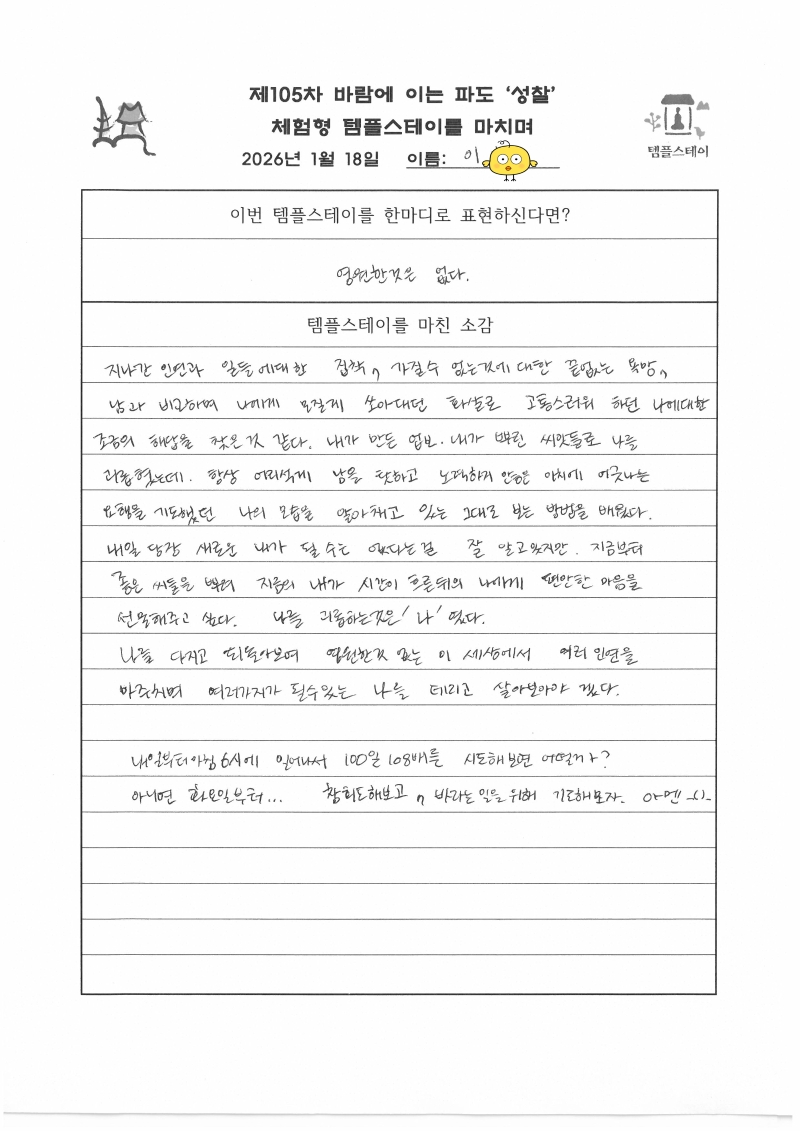 제105차 바람에 이는 파도 ‘성찰’
체험형 템플스테이를 마치며
2026년 1월 18일 이름: 이
템플스테이
이번 템플스테이를 한마디로 표현하신다면?
영원한것은 없다.
템플스테이를 마친 소감
지나간 인연과 일들에대한 집착, 가질수 없는것에 대한 끝없는 욕망,
남과 비교하며 나에게 모질게 쏘아대던 화살로 고통스러워 하던 나에대한
조금의 해답을 찾은것 같다. 내가 만든 업보. 내가 뿌린 씨앗들로 나를
괴롭혔는데. 항상 어리석게 남을 탓하고 노력하지 않은 이치에 어긋나는
요행을 기도했던 나의 모습을 알아채고 있는 그대로 보는 방법을 배웠다.
내일 당장 새로운 내가 될 수는 없다는걸 잘 알고있지만. 지금부터
좋은 씨들을 뿌려 지금의 내가 시간이 흐른뒤의 나에게 편안한 마음을
선물해주고 싶다. 나를 괴롭히는것은 '나' 였다.
나를 다지고 되돌아보며 영원한것 없는 이 세상에서 여러 인연을
마주치며 여러가지가 될수있는 나를 데리고 살아보아야 겠다.
내일부터 아침 6시에 일어나서 100일 108배를 시도해보면 어떨까?
아니면 화요일부터... 참회도해보고, 바라는 일을 위해 기도해보자. 아멘